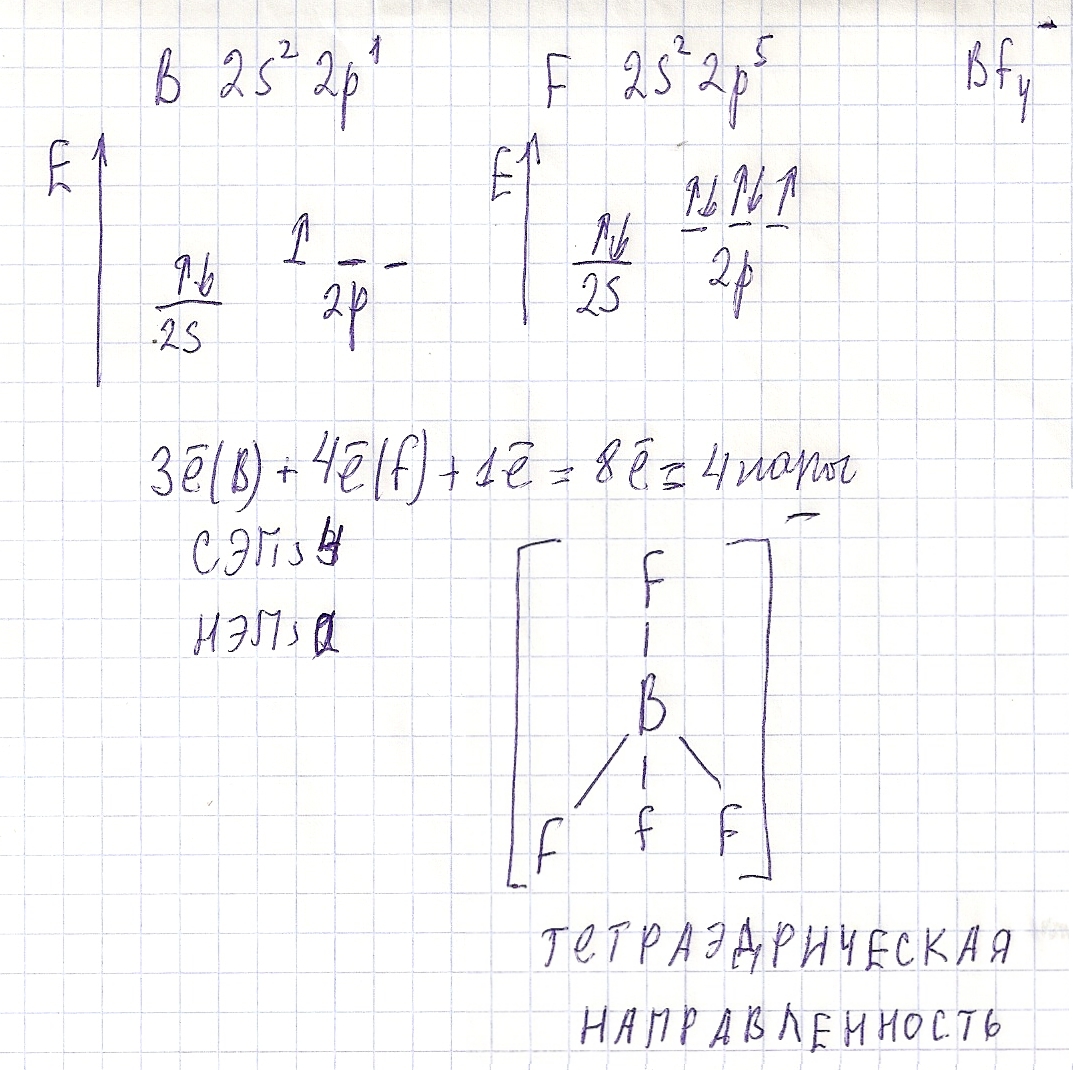 B 2s² 2p¹ F 2s² 2p⁵ Bf₄⁻
E E
↑↓ ↑ _ _ ↑↓ ↑↓ ↑↓ ↑
2s 2p 2s 2p
3ē(B) + 4ē(f) + 1ē = 8ē = 4 пары
СЭП = 4
НЭП =
F
B
F f F
ТЕТРАЭДРИЧЕСКАЯ
НАПРАВЛЕННОСТЬ